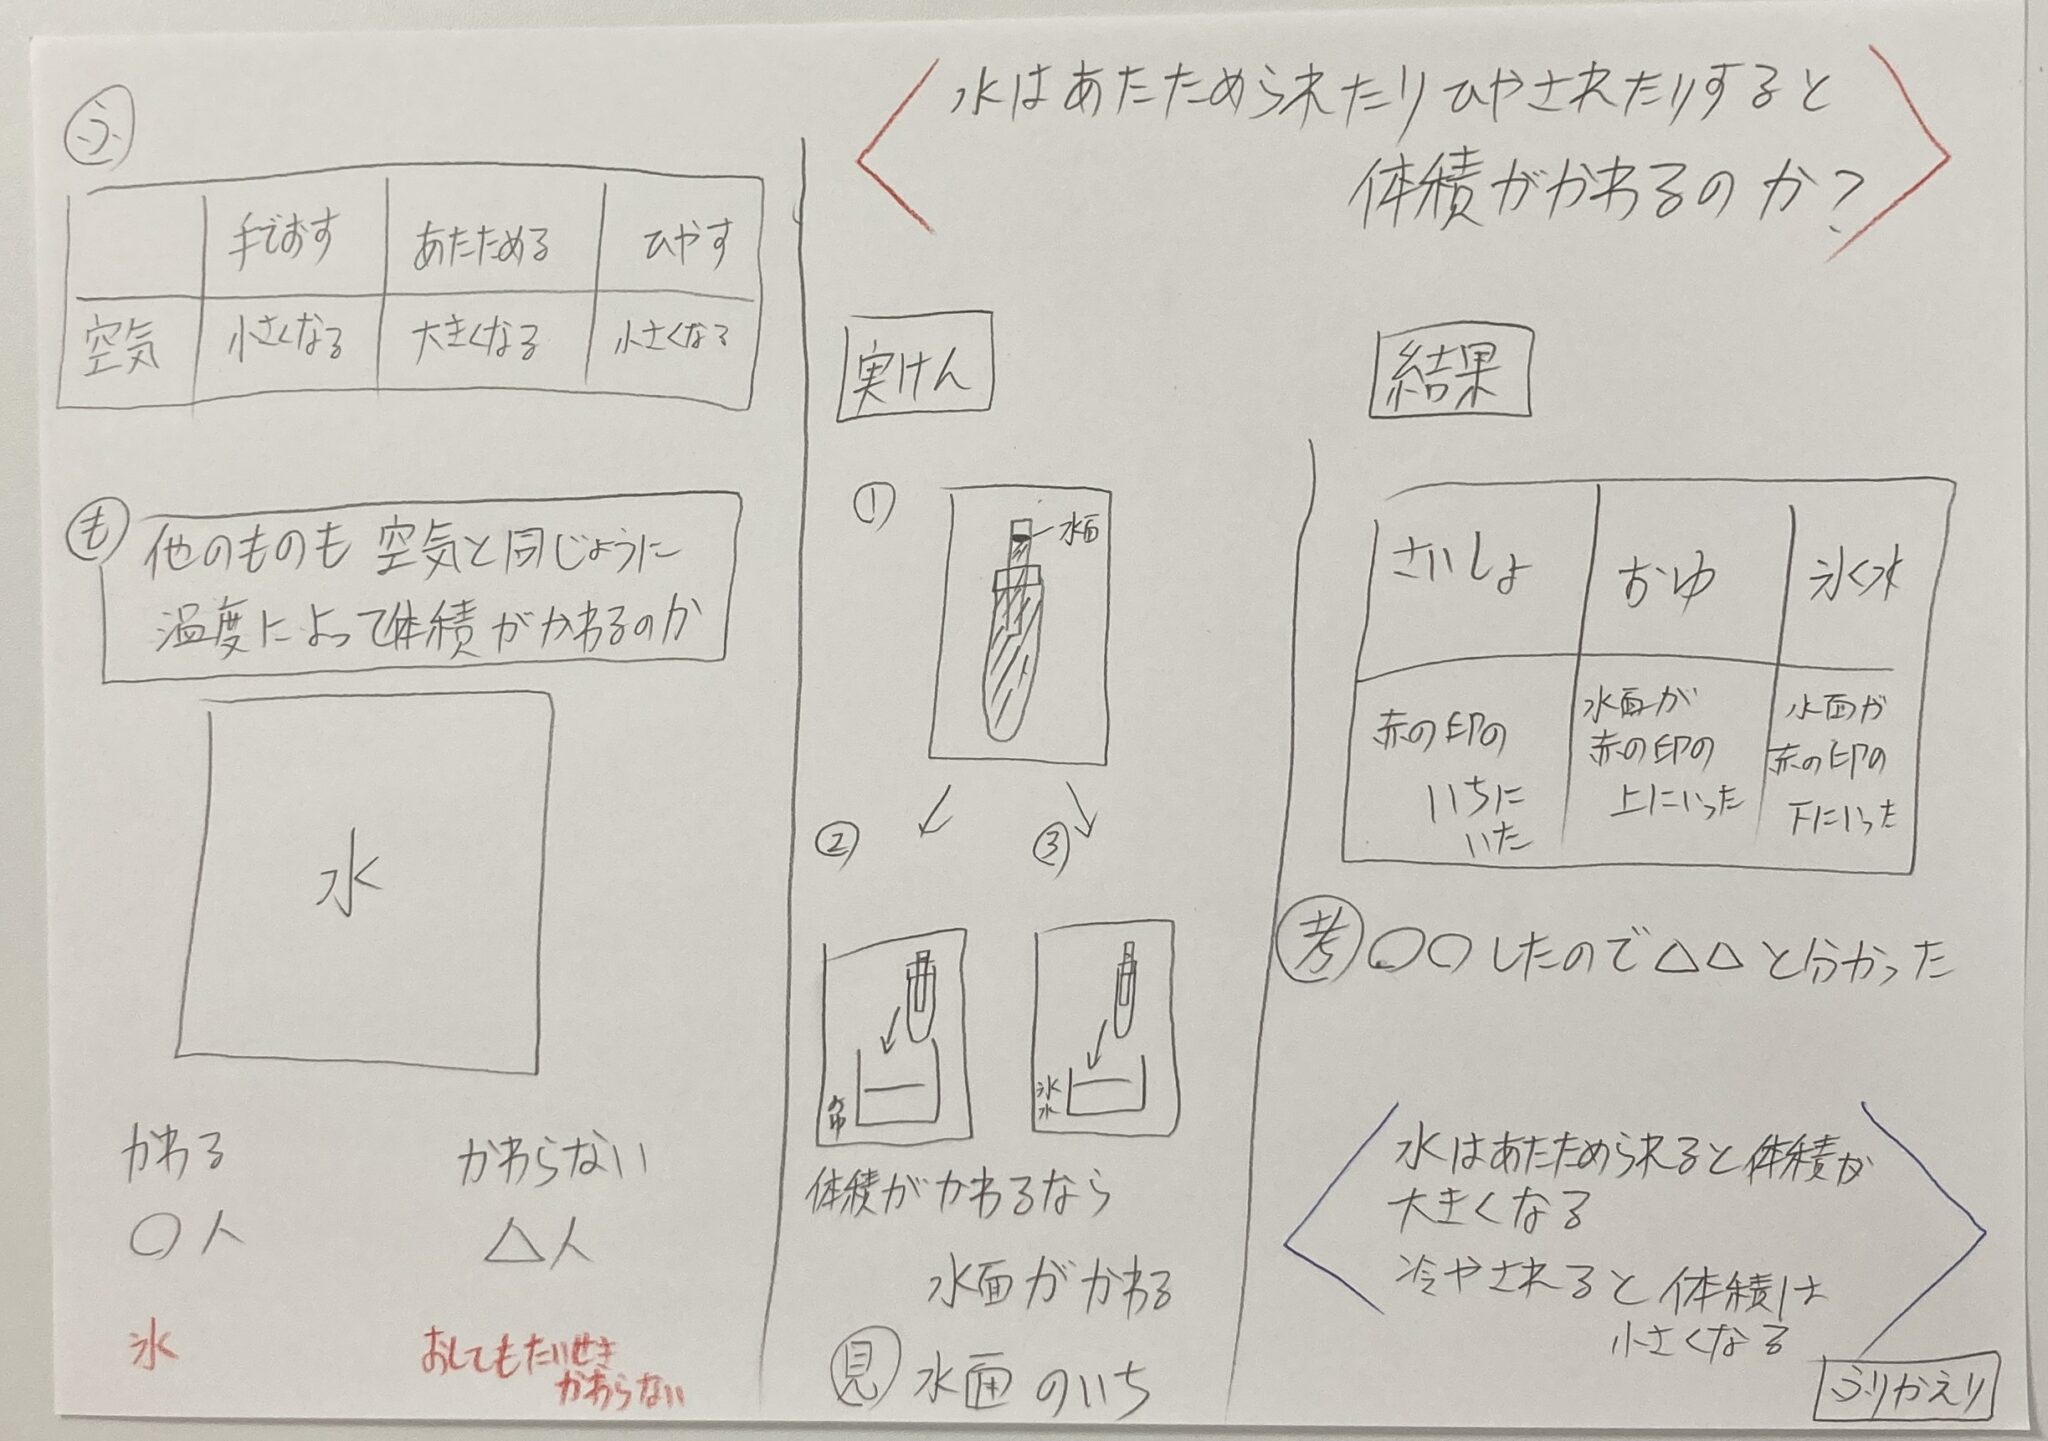 ふ
手でおす あたためる ひやす
空気 小さくなる 大きくなる 小さくなる
も
他のものも 空気と同じように
温度によって体積がかわるのか
水
かわる かわらない
○人 △人
氷 おしてもたいせき
かわらない
水はあたためられたりひやされたりすると
体積がかわるのか?
実けん
①
水面
② ③
氷
水
体積がかわるなら
水面がかわる
見 水面のいち
結果
さいしょ おゆ 氷水
赤の印の
いちに
いた
水面が
赤の印の
上にいった
水面が
赤の印の
下にいった
考 ○○したので△△と分かった
水はあたためられると体積が
大きくなる
冷やされると体積は
小さくなる
ふりかえり